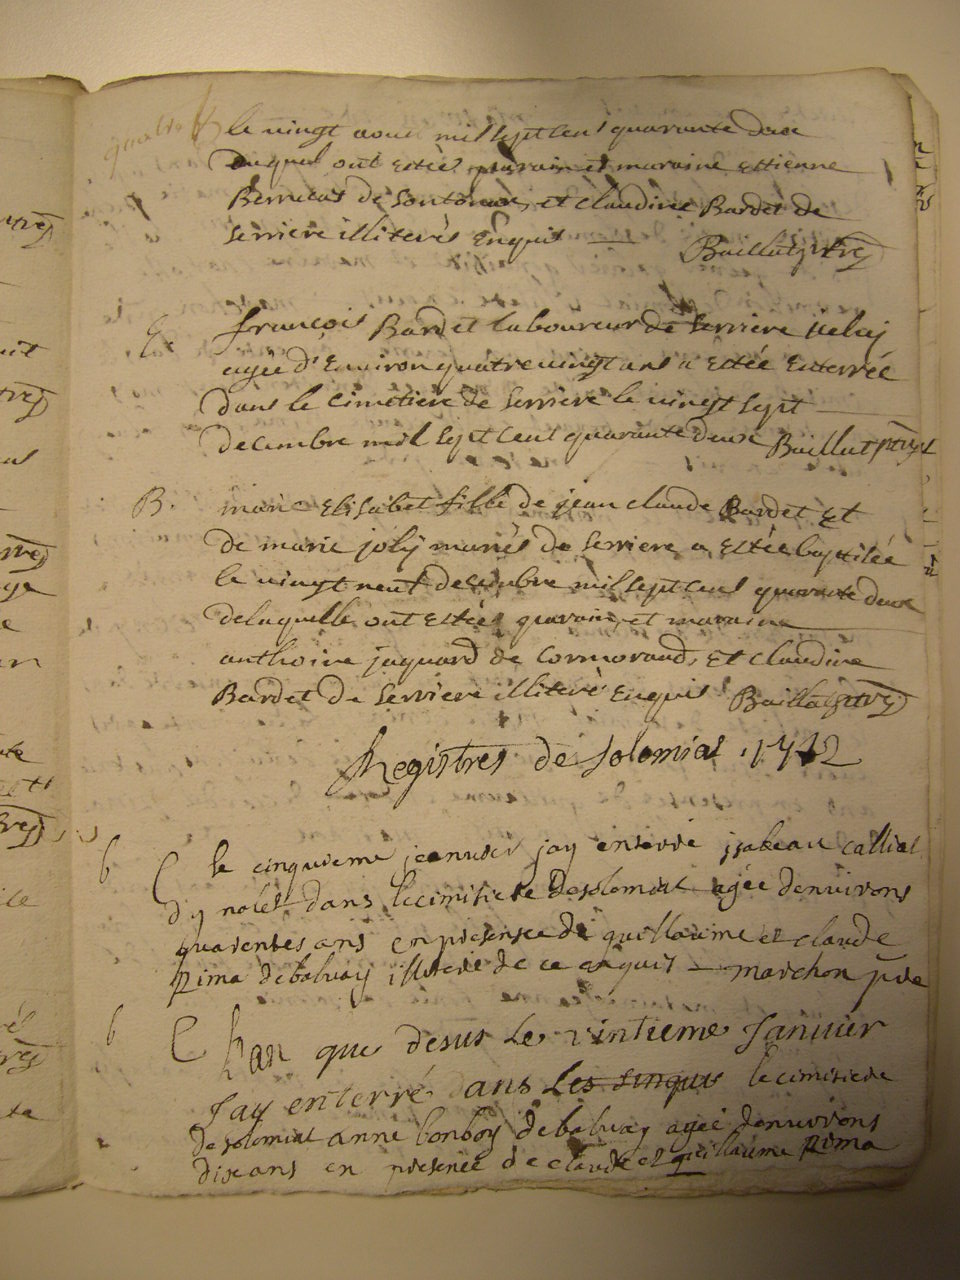 le vingt aout mil sept cens quarante deux
duquel ont estées parain et maraine estienne
Bernicat de Sontonax, et claudine Bardet de
serriere illiterés Enquis — Baillat ptre
E. françois Bardet laboureur de serriere
agée d'Environ quatrevingt ans a Estée Enterrée
Dans le cimetiere de serriere le vingt sept
decembre mil sept cens quarante deux Baillat ptre
B. marie Elisabet fille de jean claude Bardet Et
De marie joly mariés de serriere a Estée baptisée
le vingt neuf decembre mil sept cens quarante deux
delaquelle ont Estées parain et maraine
anthoine jaquard de Cormorand, Et claudine
Bardet de serriere illiteré Enquis Baillat ptre
Registres de solomiat 1742
le cinquieme jeanvier jay enterré jsabeau calliat
dans le cimitiere de solomiat agée denvirons
quarentes ans en presensce de guillaume et claude
Rima debolvay illiteré de ce enquis — marchon ptre
C han que desus le vintieme Janvier
Jay enterré dans les sinquis le cimitiere
de solomiat anne bonboy debolvay agée denvirons
dix ans en presence de claude et guillaume Rima